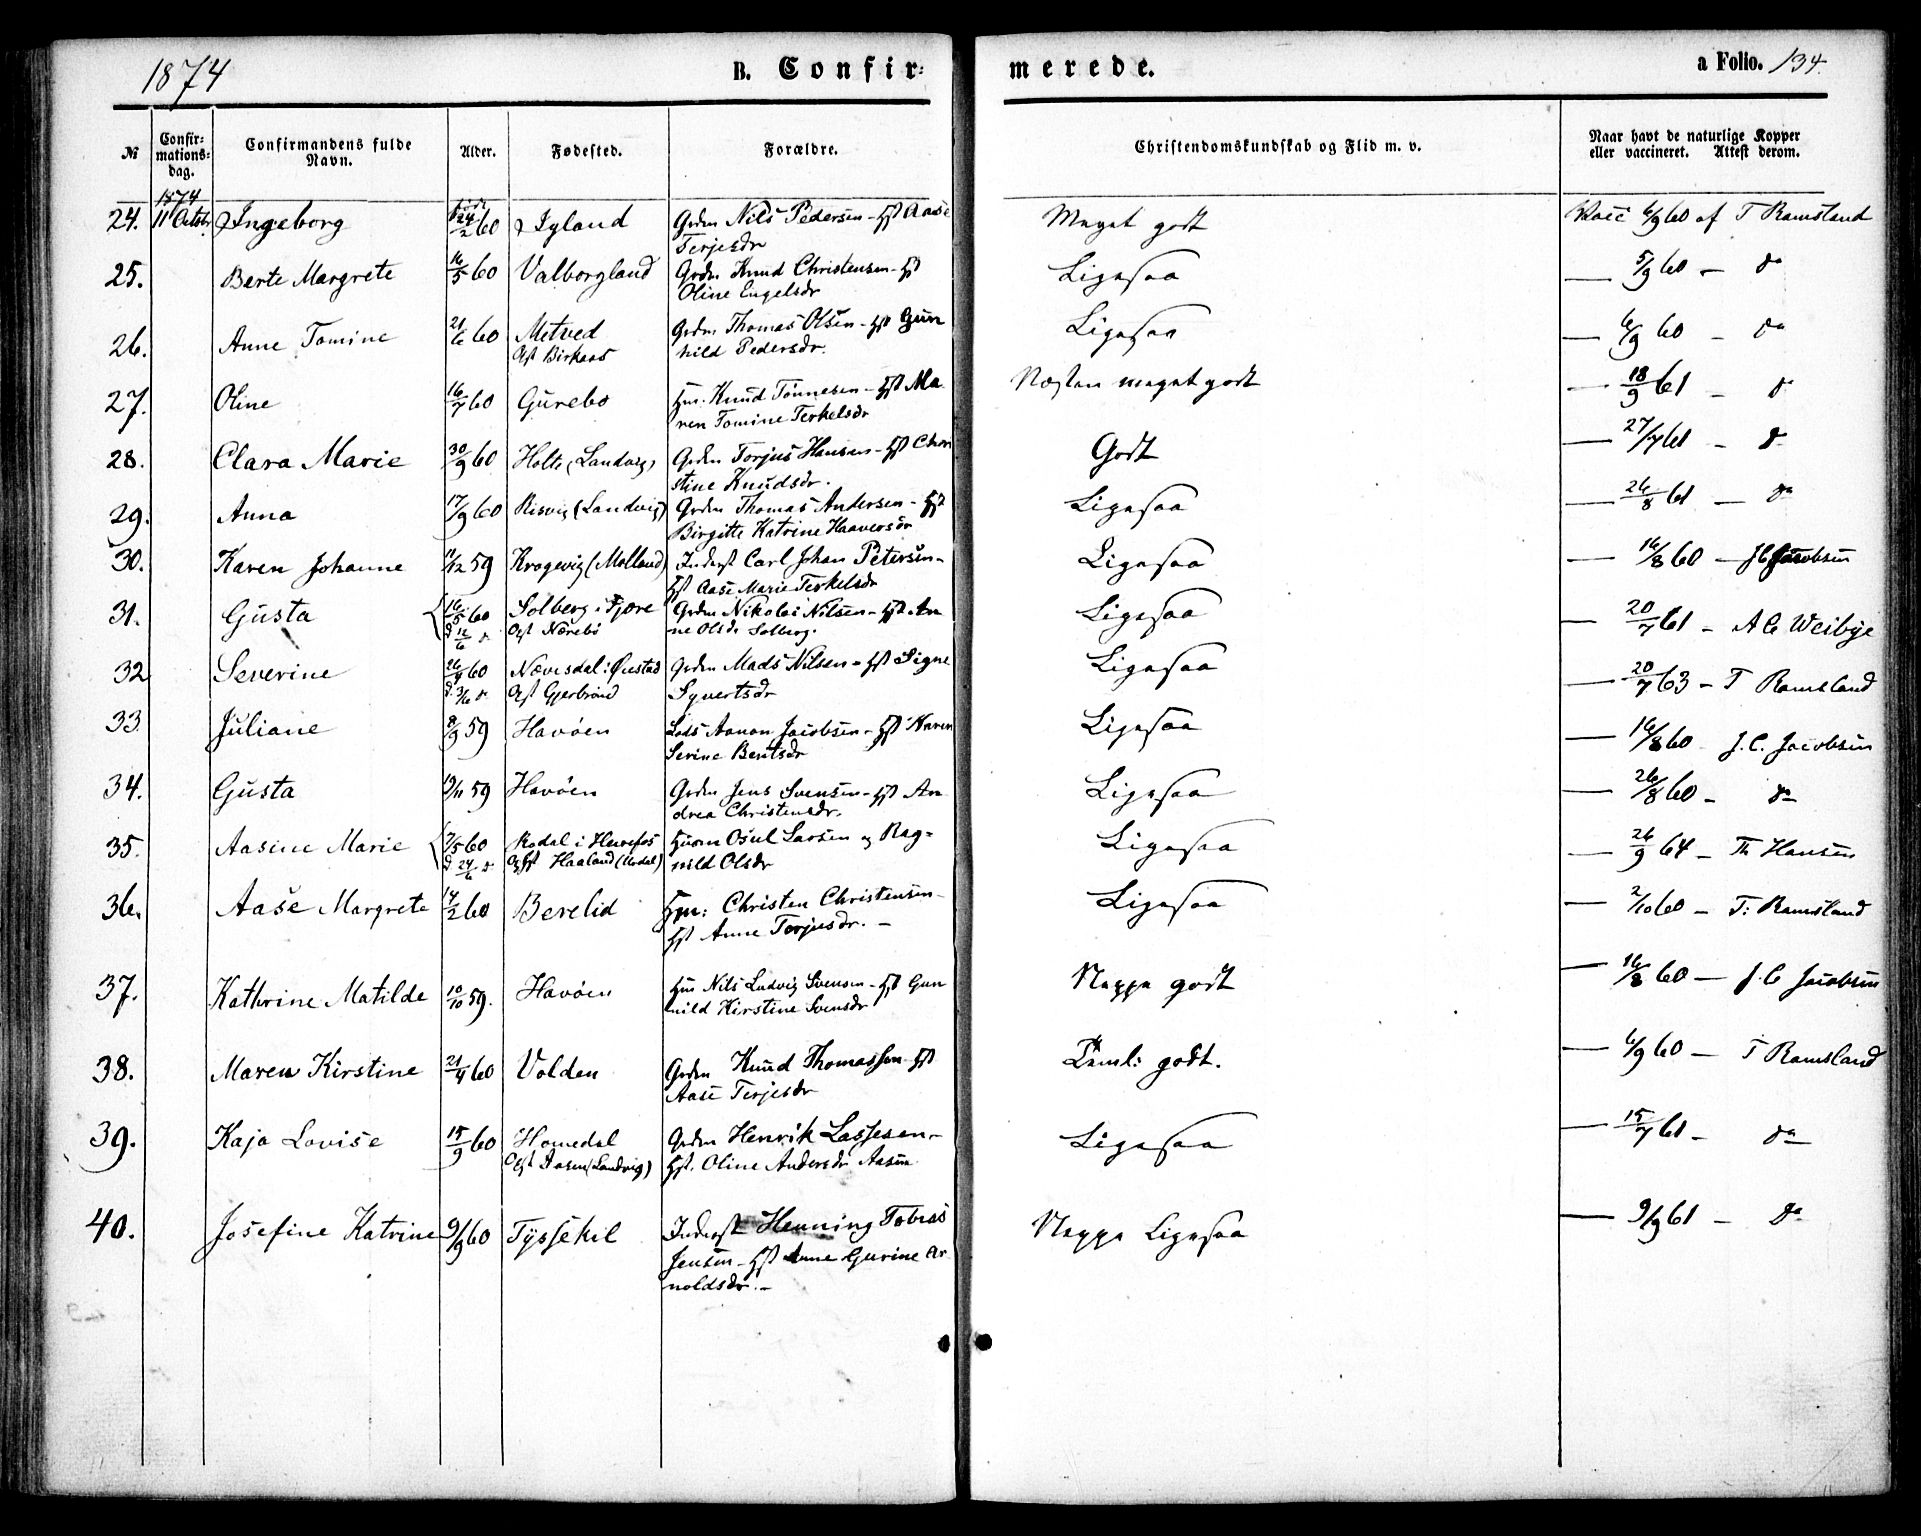 1874 B. Confir- merede. a Folio. 134.
№ Confir-mations-dag. Confirmandens fulde Navn. Alder. Fødested. Forældre. Christendomskundskab og Flid m. v. Naar havt de naturlige Kopper eller vaccineret. Attest derom.
1874 født
24. 11 Octobr. Ingeborg 24/2 60 Igland Grdm Nils Pedersen - Hst Aase Meget godt Vacc 6/9 60 af T Ramsland
Terjesdr
25. Berte Margrete 16/5 60 Valborgland Grdm Knud Christensen - Hst Ligesaa — 5/9 60 — do
Oline Engelsdr
26. Anne Tomine 21/6 60 Metved Grdm Thomas Olsen - Hst Gun Ligesaa — 6/9 60 — do
Opf Birkaas nild Pedersdr.
27. Oline 16/7 60 Gurebo Hm. Knud Tønnesen - Hst Ma Næsten meget godt — 18/9 61 — do
ren Tomine Terkelsdr
28. Clara Marie 30/9 60 Holte (Landvig) Grdm Torjus Hansen - Hst Chri Godt — 27/7 61 — do
stine Knudsdr.
29. Anna 17/9 60 Risvig (Landvig) Grdm Thomas Andersen - Hst Ligesaa — 26/8 61 — do
Birgitte Katrine Haaversdr
30. Karen Johanne 11/12 59 Krogevig (Molland) Inderst Carl Johan Petersen - Ligesaa — 16/8 60 — J C Jacobsen
Hst Aase Marie Terkelsdr
31. Gusta 16/5 60 Solberg i Fjære Grdm Nikolai Nilsen - Hst An Ligesaa — 20/7 61 — A C Weibye
d 12/6 do Opf Nærebø ne Olsdr Solberg.
32 Severine 26/4 60 Nævesdal i Øiestad Grdm Mads Nilsen - Hst Signe Ligesaa — 20/7 63 — T Ramsland
d. 3/6 do Opf Gjerbrønd Syvertsdr
33. Juliane 8/9 59 Havøen Lods Aanon Jacobsen - Hst Karen Ligesaa — 16/8 60 J. C. Jacobsen
Serine Bentsdr
34. Gusta 19/11 59 Havøen Grdm Jens Svensen - Hst An Ligesaa — 26/8 60 — do
drea Christensdr.
35. Aasine Marie 7/5 60 Rodal i Herrefos Husm Osul Larsen og Rag- Ligesaa — 26/9 64 — Th Hansen
d 24/6 do Opf Haaland (Urdal) nild Olsdr
36. Aase Margrete 14/2 60 Berelid Hm: Christen Christensen - Ligesaa — 2/10 60 — T: Ramsland
Hst Anne Torjusdr. —
37. Kathrine Matilde 10/10 59. Havøen Hm Nils Ludvig Svensen - Hst Gun Neppe godt — 16/8 60 — J. C Jacobsen
nild Kirstine Svensdr
38. Maren Kirstine 21/4 60 Volden Grdm Knud Thomassen - Hst Temli: godt. — 6/9 60 — T Ramsland
Aase Terjesdr
39. Kaja Lovise 15/9 60 Homedal Grdm Henrik Lassesen - Ligesaa — 15/7 61 — do
Opf Aasen (Landvig) Hst. Oline Andersdr Aasen
40. Josefine Katrine 9/9 60 Tyssekil Inderst Henning Tobias Neppe Ligesaa — 9/9 61 — do
Jensen - Hst Anne Gurine Ar
noldsdr. —